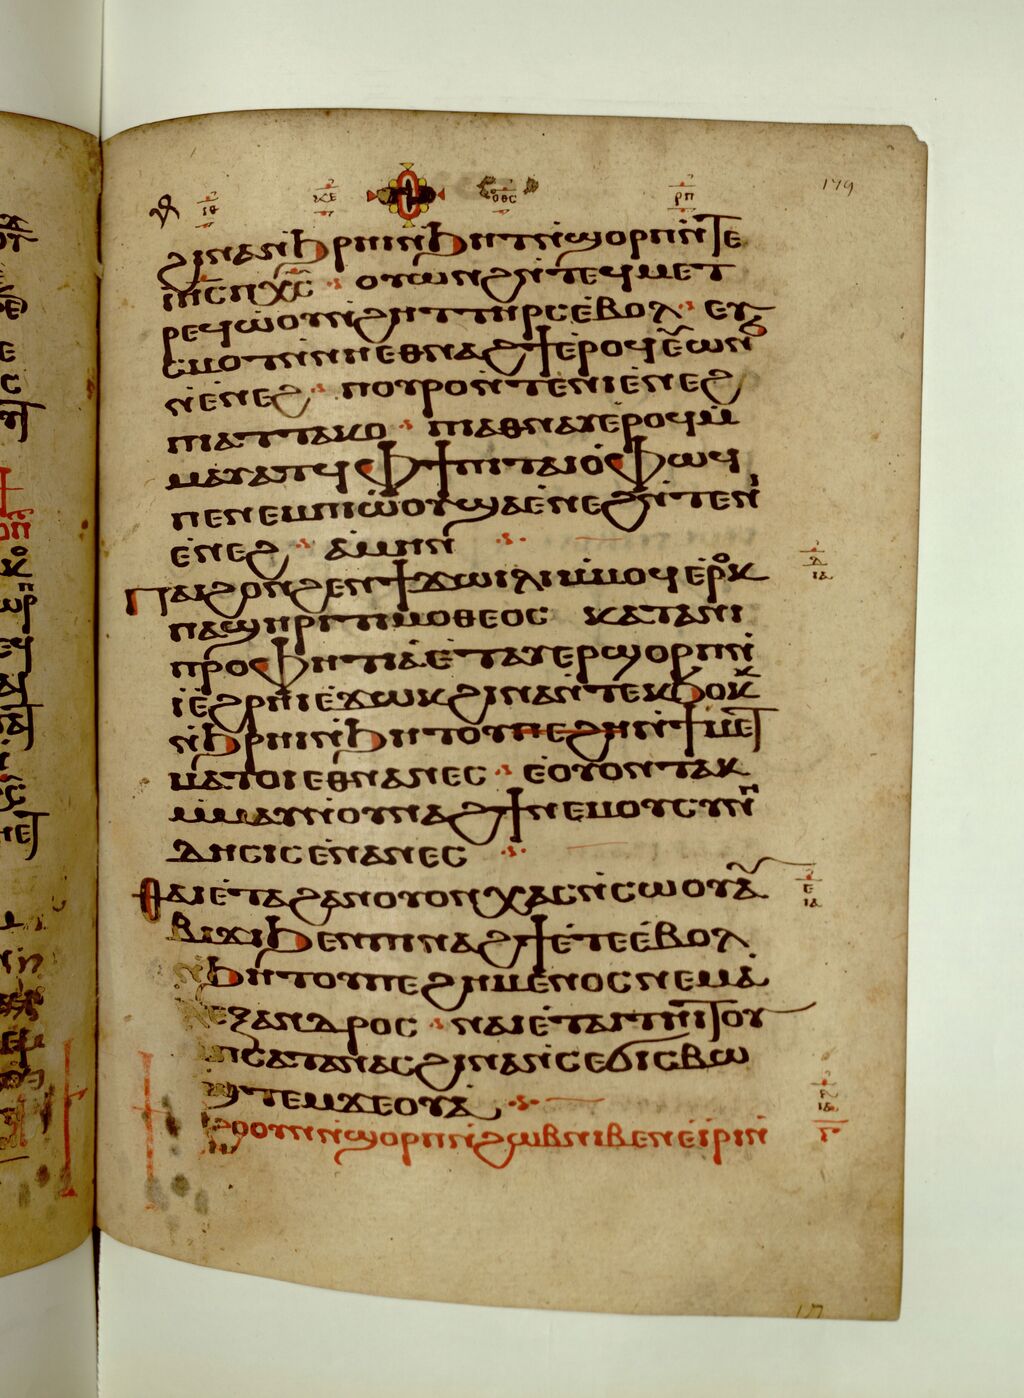 ϩⲓⲛⲁⲛ̀ϧⲣⲏⲓⲛ̀ϧⲏⲧⲛ̀ϣⲟⲣⲡⲛ̀ⲧⲉ
ⲓⲏⲥⲡⲭⲥ ⲟⲩⲱⲛϩⲛ̀ⲧⲉϥⲙⲉⲧ
ⲣⲉϥⲱⲟⲩⲛ̀ϩⲏⲧⲧⲏⲣⲥⲉ̀ⲃⲟⲗ ⲉⲩ
ⲥⲙⲟⲧⲛ̀ⲛⲏⲉⲑⲛⲁϩϯⲉ̀ⲣⲟϥⲉ̀ⲱⲛϧ
ⲛ̀ⲉ̀ⲛⲉϩ ⲡⲟⲩⲣⲟⲛ̀ⲧⲉⲛⲓⲉ̀ⲛⲉϩ
ⲡⲓⲁⲧⲧⲁⲕⲟ ⲡⲓⲁⲑⲛⲁⲩⲉ̀ⲣⲟϥⲙ̀
ⲙⲁⲩⲁⲧϥ ⲫϯⲡⲓⲧⲁⲓⲟ̀ⲫⲱϥ
ⲡⲉⲛⲉⲙⲡⲓⲱ̀ⲟⲩϣⲁⲉ̀ⲛⲉϩⲛ̀ⲧⲉⲛⲓ
ⲉ̀ⲛⲉϩ ⲁ̀ⲙⲏⲛ
ⲡⲁⲓϩⲟⲛϩⲉⲛϯⲭⲱⲓⲗⲓⲙ̀ⲙⲟϥⲉ̀ⲣⲟⲕ
ⲡⲁϣⲏⲣⲓⲧⲓⲙⲟⲑⲉⲟⲥ ⲕⲁⲧⲁⲛⲓ
ⲡⲣⲟⲫⲏⲧⲓⲁ̀ⲉ̀ⲧⲁⲩⲉⲣϣⲟⲣⲡⲛ̀
ⲓ̀ⲉ̀ϩⲣⲏⲓⲉ̀ϫⲱⲕϩⲓⲛⲁⲛ̀ⲧⲉⲕϧⲟⲕ
ⲛ̀ϧⲣⲏⲓⲛ̀ϧⲏⲧⲟⲩⲛ̀ϯⲙⲉⲧ
ⲙⲁⲧⲟⲓⲉⲑⲛⲁⲛⲉⲥ ⲉ̀ⲟⲩⲟⲛⲧⲁⲕ
ⲙ̀ⲙⲁⲩⲛ̀ⲟⲩⲛⲁϩϯⲛⲉⲙⲟⲩⲥⲩⲛⲏ
ⲇⲏⲥⲓⲥⲉ̀ⲛⲁⲛⲉⲥ
ⲑⲁⲓⲉ̀ⲧⲁϩⲁⲛⲟⲩⲟⲛⲭⲁⲥⲛ̀ⲥⲱⲟⲩⲁ̀
ⲃⲓϫⲓϧⲉⲛⲡⲓⲛⲁϩϯⲉ̀ⲧⲉⲉ̀ⲃⲟⲗ
ⲛ̀ϧⲏⲧⲟⲩⲡⲉϩⲩⲙⲉⲛⲟⲥⲛⲉⲙⲁ̀
ⲗⲉⲝⲁⲛⲇⲣⲟⲥ ⲛⲁⲓⲉ̀ⲧⲁⲓⲧⲏⲓⲧⲟⲩ
ⲙ̀ⲡⲥⲁⲧⲁⲛⲁⲥϩⲓⲛⲁⲛ̀ⲥⲉϭⲓⲥⲃⲱ
ϣ̀ⲧⲉⲙϫⲉⲟⲩⲁ̀
ϯϩⲟⲟⲩⲛ̀ϣⲟⲣⲡⲛ̀ϩⲱⲃⲛⲓⲃⲉⲛⲉ̀ⲓ̀ⲣⲓⲛ̀